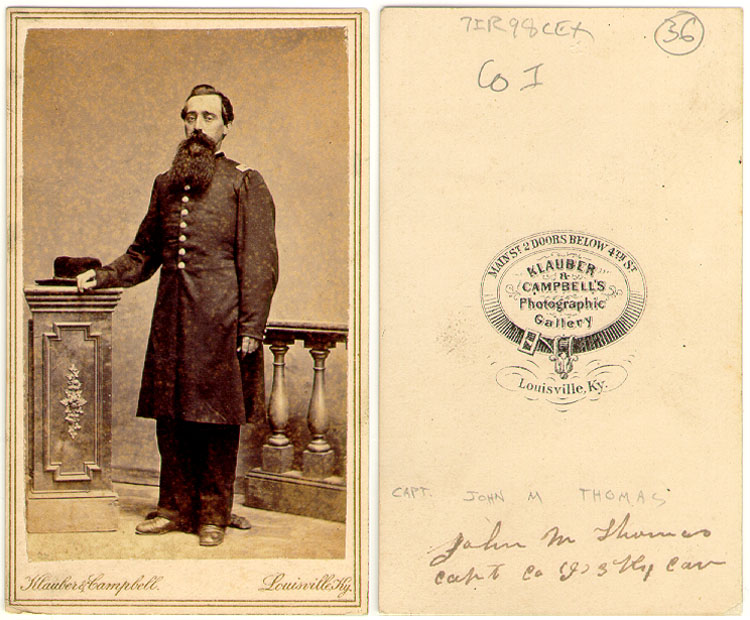 Klauber & Campbell. Louisville, Ky.
7IR98CEX
36
Co I
MAIN ST 2 DOORS BELOW 4TH ST
KLAUBER
&
CAMPBELL'S
Photographic
Gallery
Louisville, Ky.
CAPT. JOHN M THOMAS
John M Thomas
Capt Co (I) 3 Ky Cav